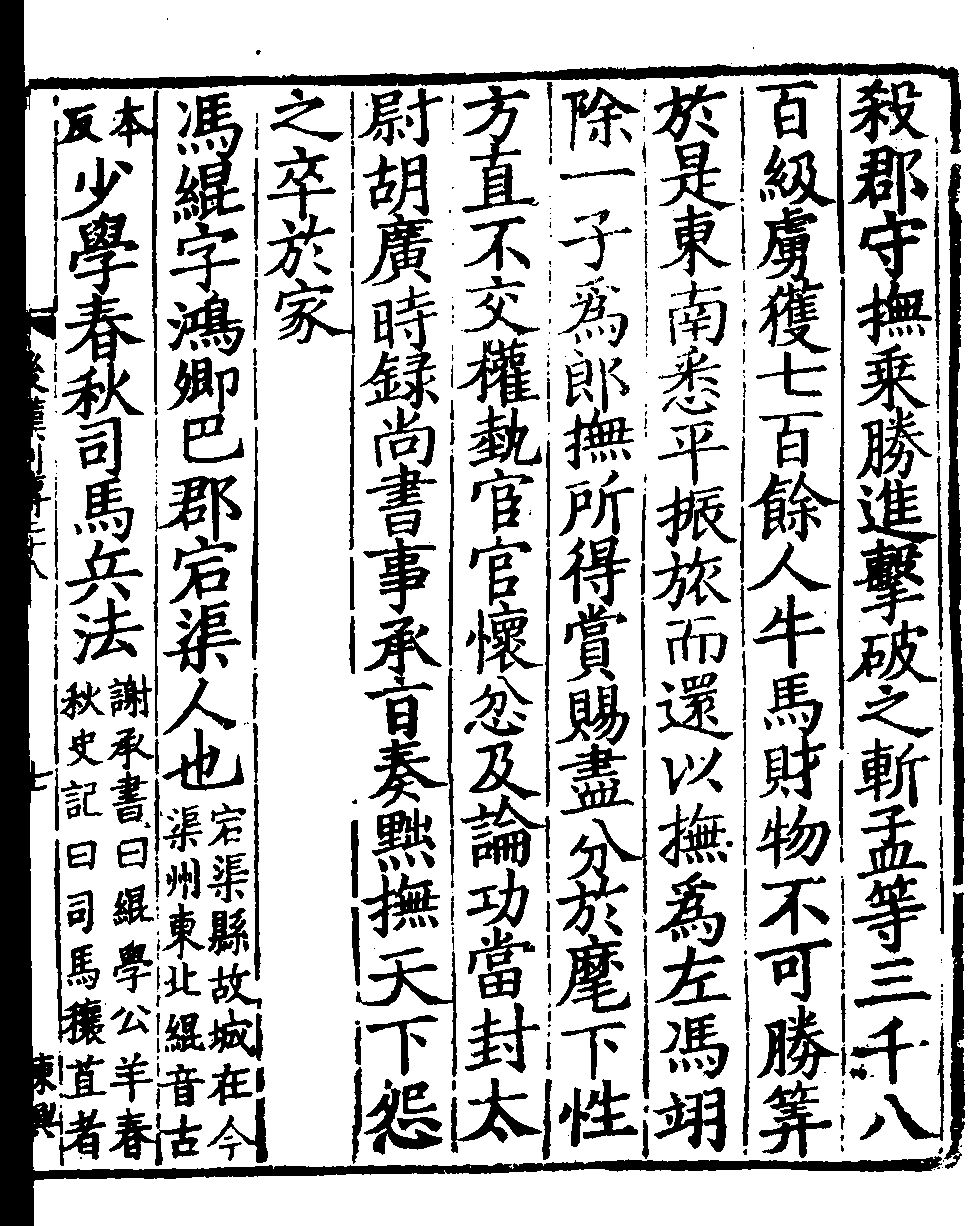 殺郡守撫乗勝進擊破之斬孟等三千八
百級虜獲七百餘人牛馬財物不可勝筭
於是東南悉平振旅而還以撫爲左馮翊
除一子爲郎撫所得賞賜盡分於麾下性
方直不交權埶宦官懷忿及論功當封太
尉胡廣時録尚書事承旨奏黜撫天下怨
之卒於家
馮緄字鴻卿巴郡宕渠人也
宕渠縣故城在今
渠州東北緄音古
本
反
少學春秋司馬兵法
謝承書曰緄學公羊春
秋史記曰司馬穰苴者
後漢列傳二十八
七